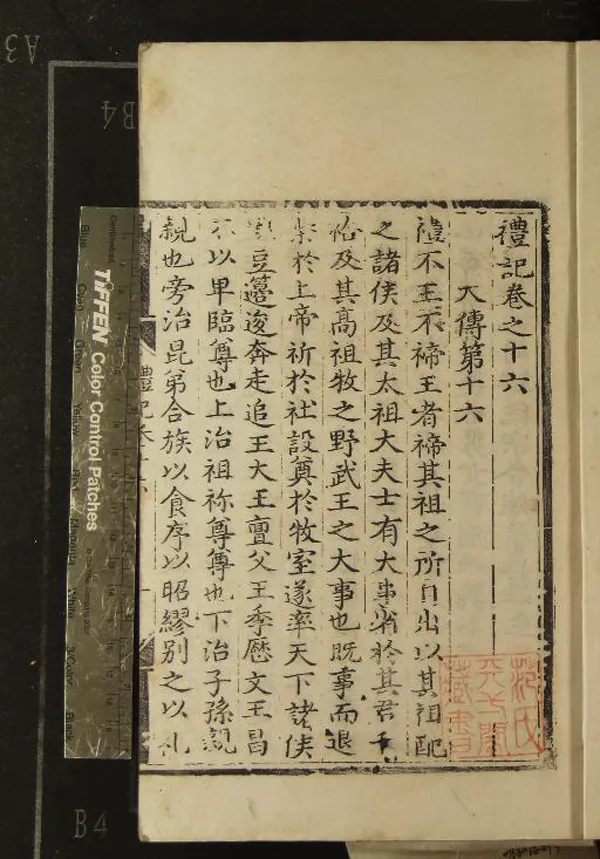 禮記卷之十六
大傳第十六
禮不王不禘王者禘其祖之所自出以其祖配
之諸侯及其太祖大夫士有大事省於其君干
祫及其高祖牧之野武王之大事也既事而退
柴於上帝祈於社設奠於牧室遂率天下諸侯
執豆籩逡奔走追王大王亶父王季歷文王昌
不以卑臨尊也上治祖祢尊尊也下治子孫親
親也旁治昆弟合族以食序以昭繆別之以礼
禮記卷十六
范氏
天一閣
藏書
TIFFEN Color Control Patches
Blue
Green
Yellow
Red
Magenta
White
3/Color
Black
A3
B4
B4